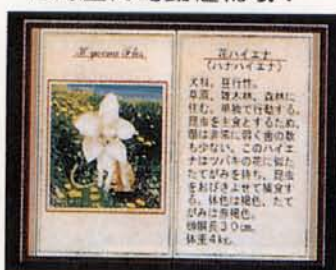 花ハイエナ
(ハナハイエナ)
犬科。昼行性。
草原、雑木林、森林に
住む。単独で行動する。
昆虫を主食とするため、
顎は非常に弱く歯の数
も少ない。このハイエ
ナはツバキの花に似た
たてがみを持ち、昆虫
をおびきよせて捕食す
る。体色は褐色、たて
がみは
頭胴長30cm。
体重4kg。